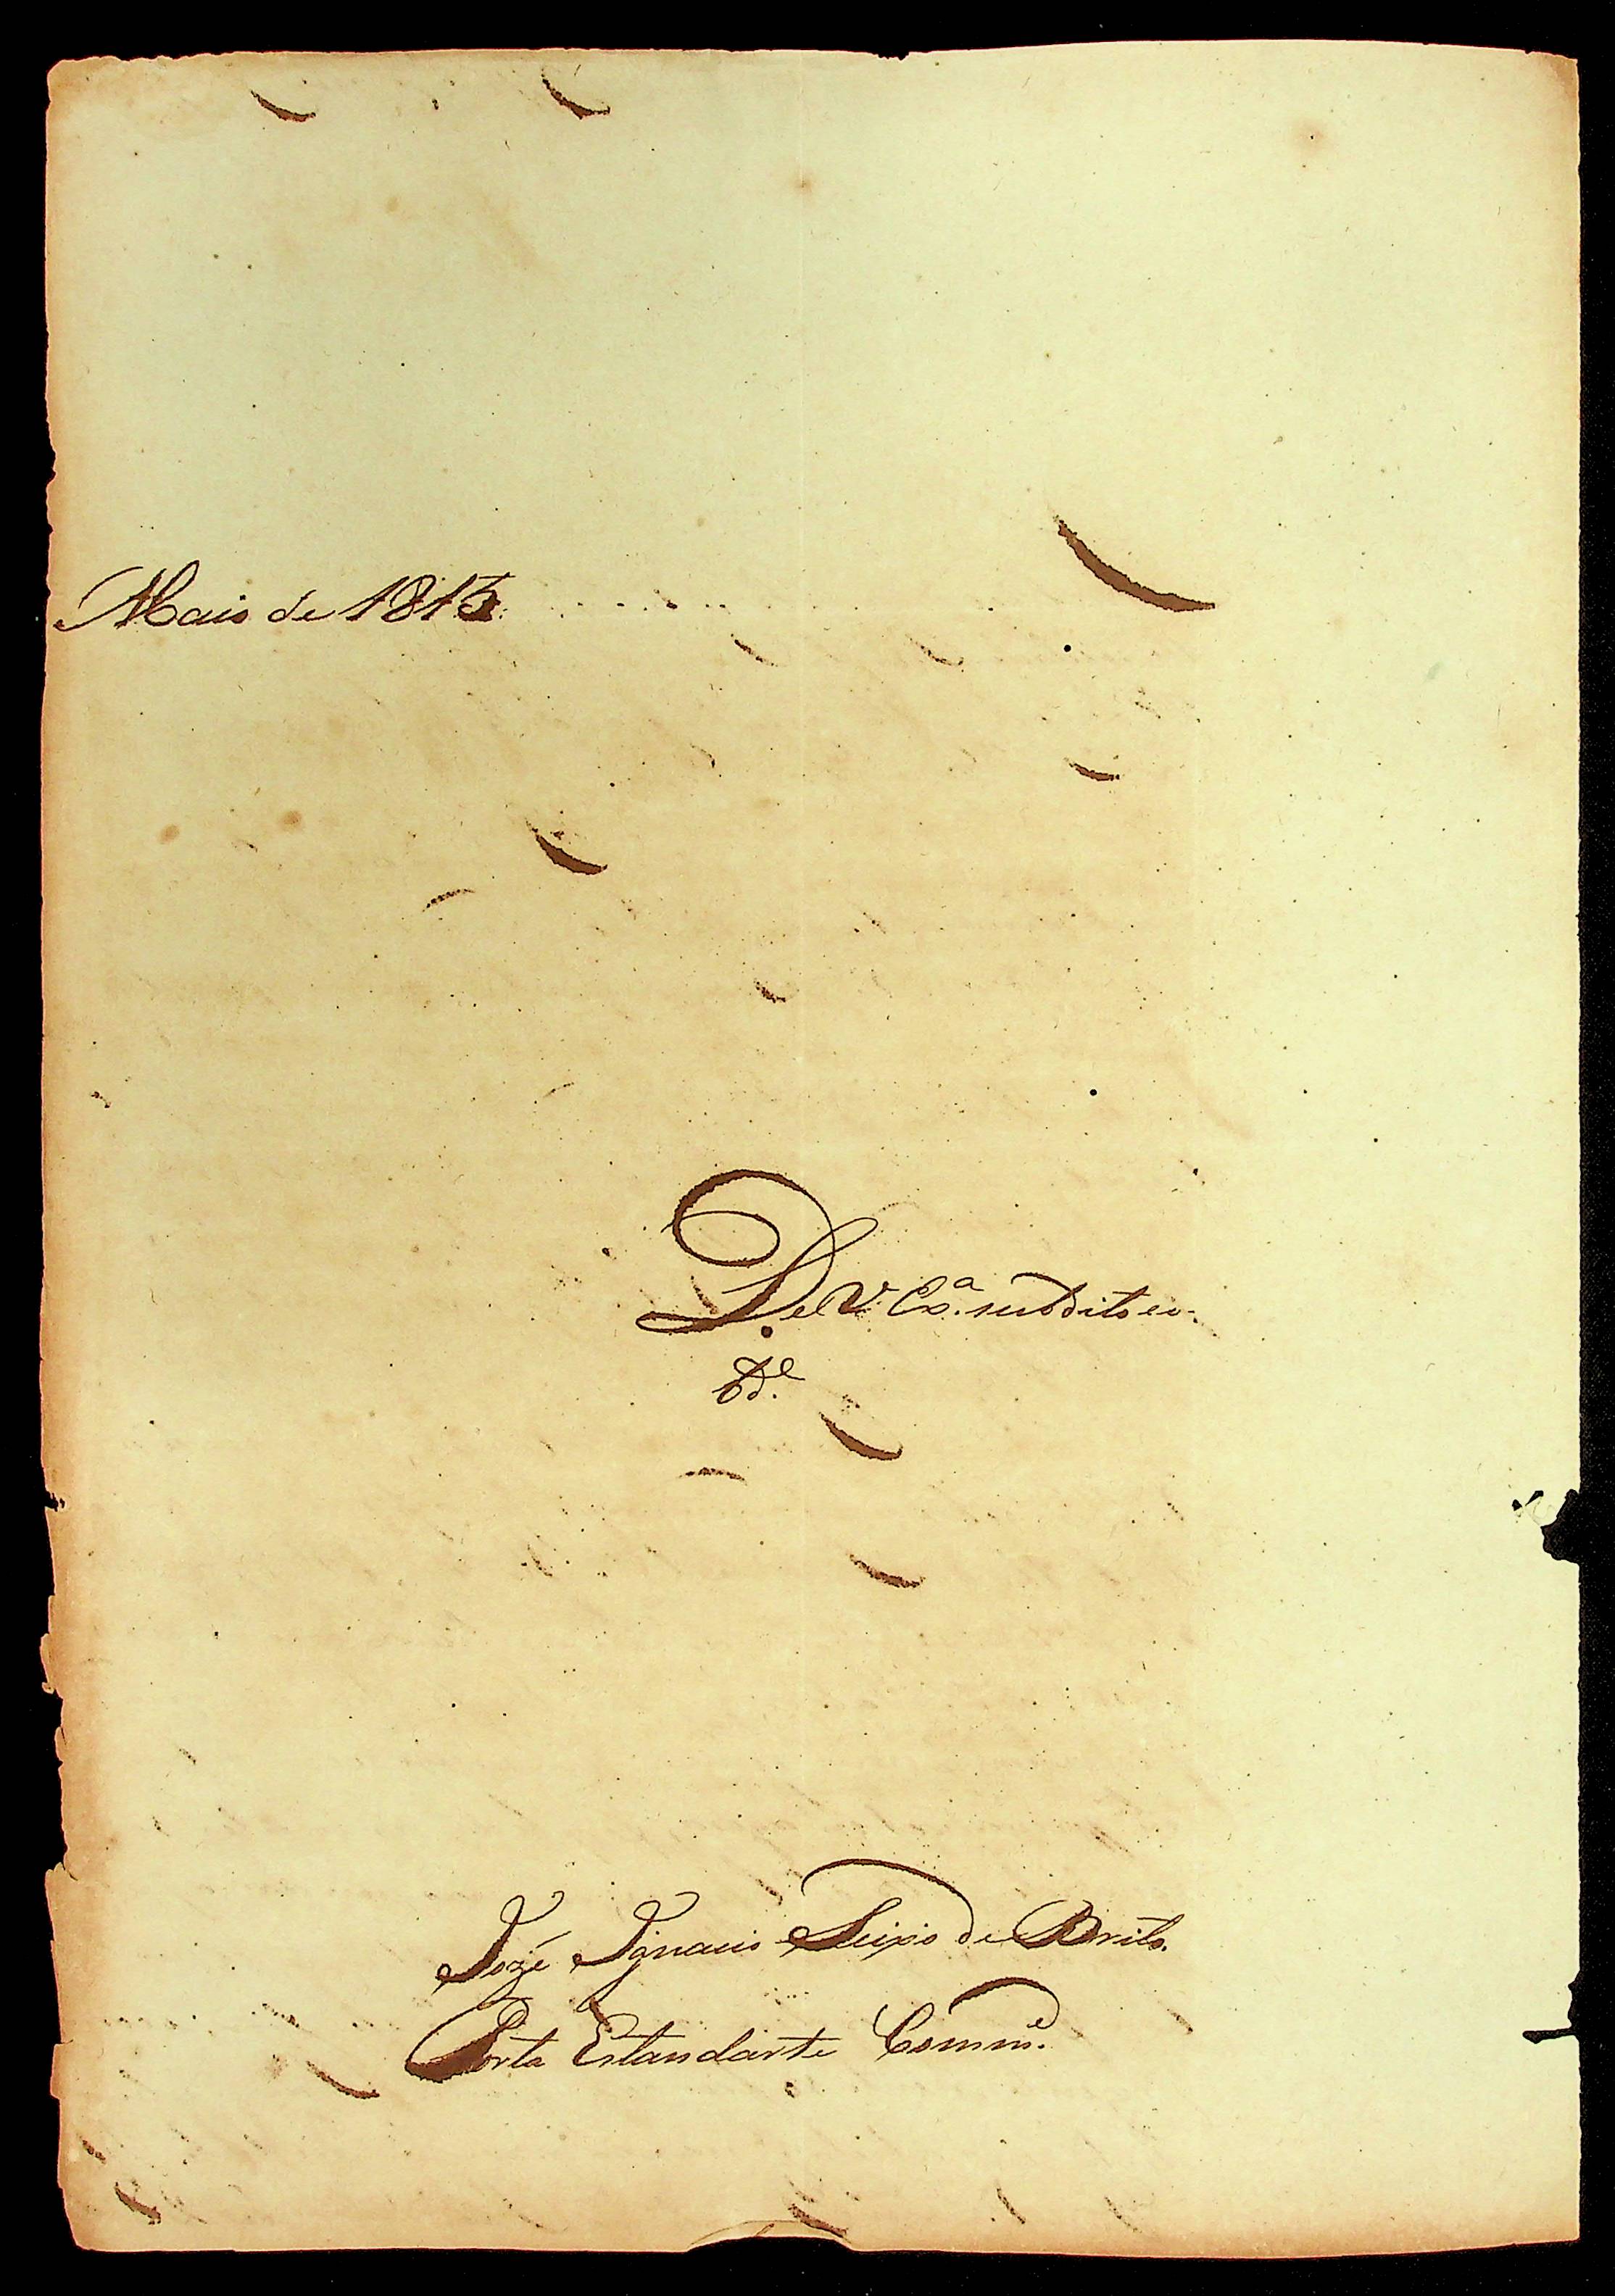 Maio de 1813
De V. Exª. subdito eo-
bdᵉ.
Jozé Ignacio Seixo de Brito.
Porta Estandarte Commᵉ.